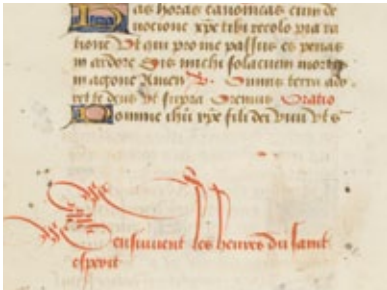 Has horas canonicas cum de
uocione xp̄e tibi recolo pia ra
tione Ut qui pro me passus es penas
in ardore Sis michi solacium mortis
in agone Amen Omnis terra ado
ret te deus ut supra Oremus Oratio
Domine ihū xp̄e fili dei viui ut s̄
Cy ensuiuent les heures du saint
esperit